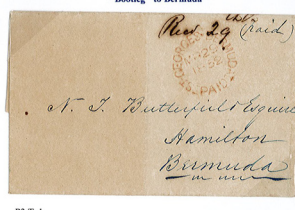 Bootleg to Bermuda
Recd 29th (paid)
ST. GEORGE'S BERMUDA
PAID
N. T. Butterfield Esquire
Hamilton
Bermuda